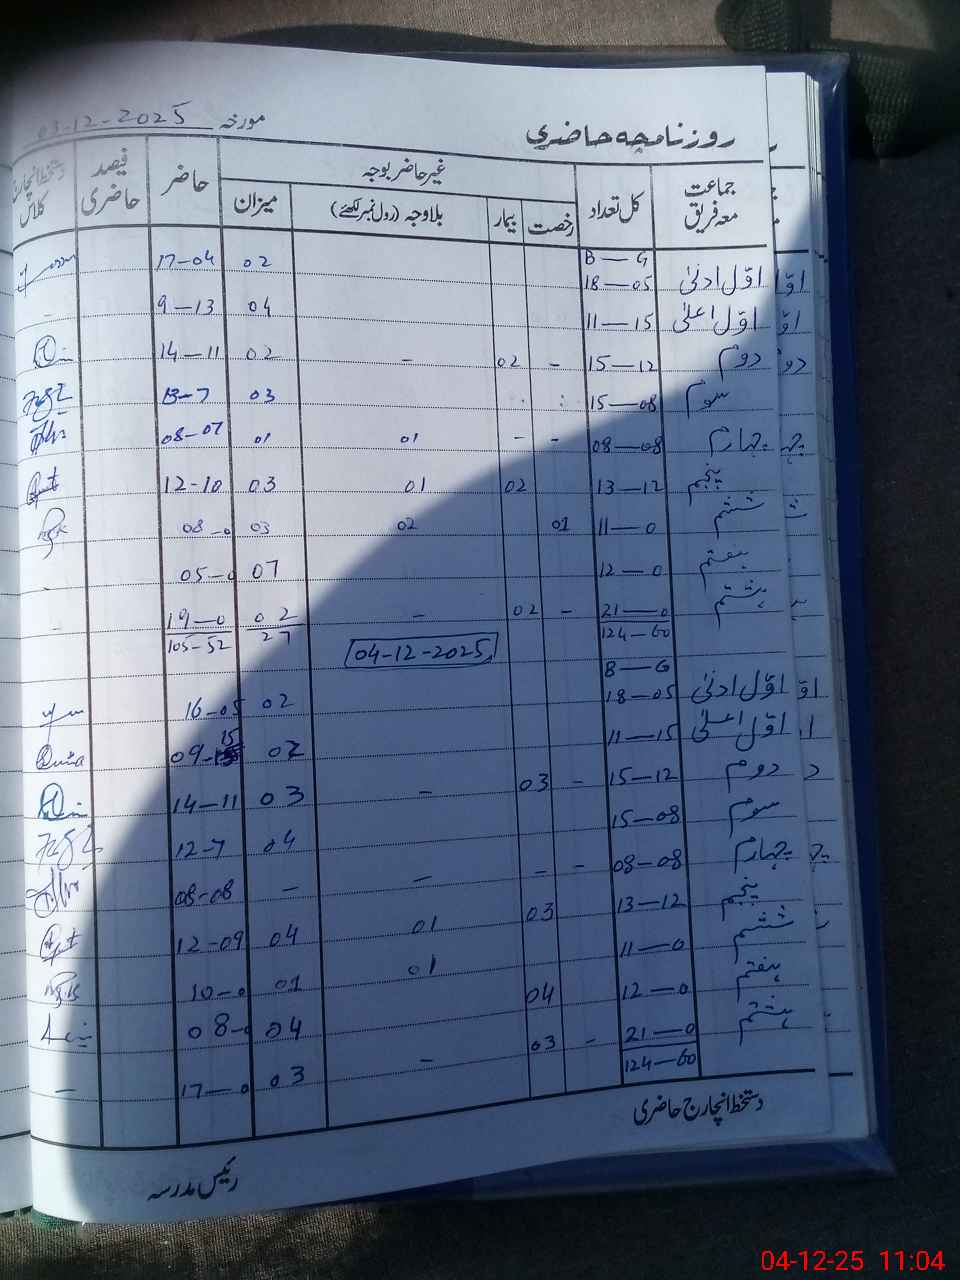 روزنامچہ حاضری مورخہ 03-12-2025
جماعت معہ فریق کل تعداد غیر حاضر بوجہ حاضر فیصد حاضری دستخط انچارج کلاس
رخصت بیمار بلاوجہ (رول نمبر لکھئے) میزان
B — G
اوّل ادنیٰ 18—05 02 17-04
اوّل اعلیٰ 11—15 04 9-13
دوم 15—12 - 02 - 02 14-11
سوم 15—08 03 13-7
چہارم 08—08 - - 01 01 08-07
پنجم 13—12 02 01 03 12-10
ششم 11—0 01 02 03 08-0
ہفتم 12—0 07 05-0 -
ہشتم 21—0 - 02 - 02 19-0 -
124-60 27 105-52
04-12-2025
B — G
اوّل ادنیٰ 18—05 02 16-05
اوّل اعلیٰ 11—15 02 09-15
دوم 15—12 - 03 - 03 14-11
سوم 15—08 04 12-7
چہارم 08—08 - - - - 08-08
پنجم 13—12 03 01 04 12-09
ششم 11—0 01 01 10-0
ہفتم 12—0 04 04 08-0
ہشتم 21—0 - 03 - 03 17-0 -
124-60
دستخط انچارج حاضری
رئیس مدرسہ
04-12-25 11:04